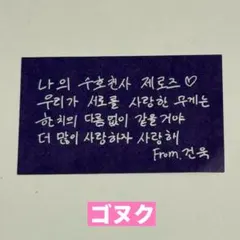 나의 수호천사 제로즈♡
우리가 서로를 사랑한 무게는
한 치의 다름없이 같을거야
더 많이 사랑하자 사랑해
From. 건욱
ゴヌク